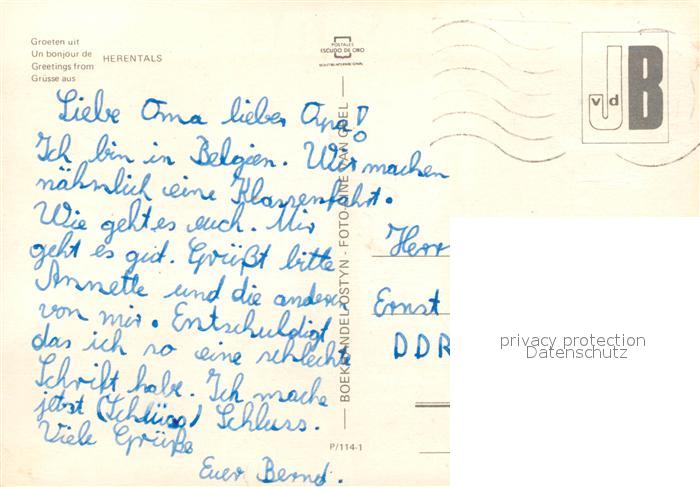 Groeten uit
Un bonjour de
Greetings from
Grüsse aus
HERENTALS
POSTALES
ESCUDO DE ORO
J
vd
B
Liebe Oma lieber Opa!
Ich bin in Belgien. Wir machen
nähmlich eine Klassenfahrt.
Wie geht es euch. Mir
geht es gut. Grüßt bitte
Annette und die anderen
von mir. Entschuldigt
das ich so eine schlechte
Schrift habe. Ich mache
jetzt (Schlüss) Schluss.
Viele Grüße
Euer Bernd.
BOEKHANDEL OSTYN - FOTO LINE VAN GEEL
P/114-1
Herr
Ernst
DDR
privacy protection
Datenschutz